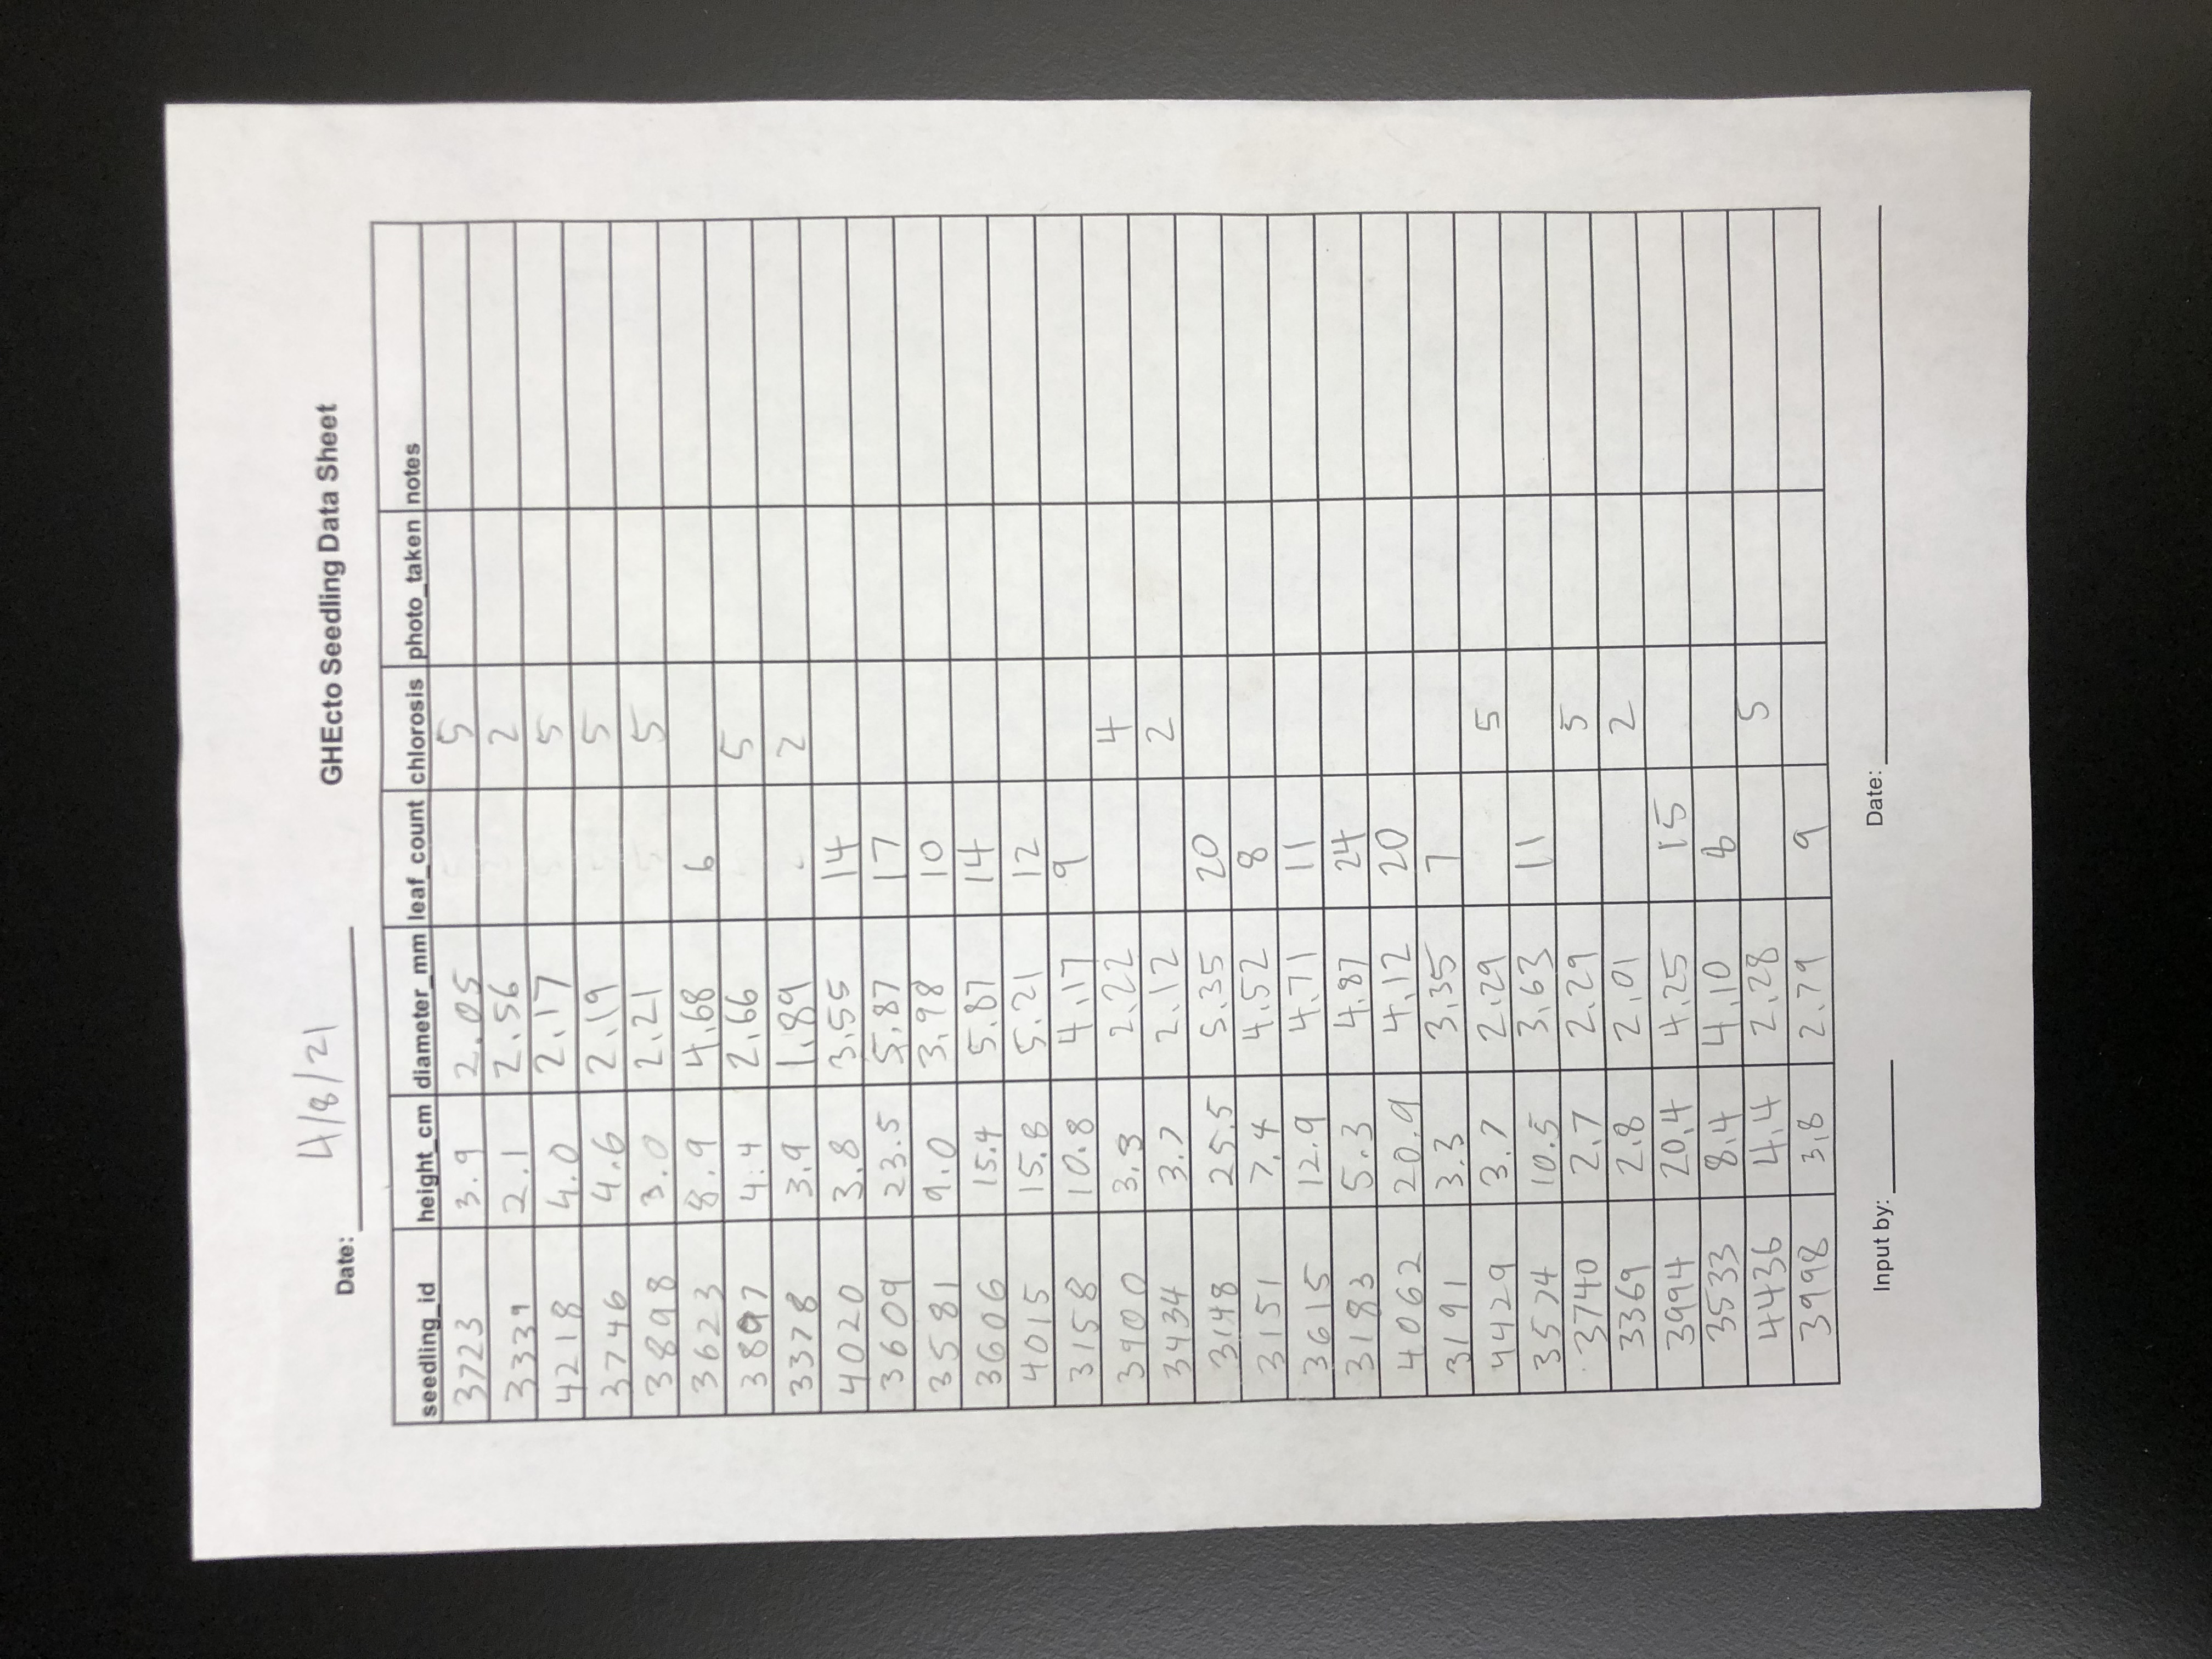 Date: 4/8/21 GHEcto Seedling Data Sheet
seedling_id height_cm diameter_mm leaf_count chlorosis photo_taken notes
3723 3.9 2.05 5
3339 2.1 2.56 2
4218 4.0 2.17 5
3746 4.6 2.19 5
3898 3.0 2.21 5
3623 8.9 4.68 6
3897 4.4 2.66 5
3378 3.9 1.89 2
4020 3.8 3.55 14
3609 23.5 5.87 17
3581 9.0 3.98 10
3606 15.4 5.87 14
4015 15.8 5.21 12
3158 10.8 4.17 9
3900 3.3 2.22 4
3434 3.7 2.12 2
3148 25.5 5.35 20
3151 7.4 4.52 8
3615 12.9 4.71 11
3183 5.3 4.87 24
4062 20.9 4.12 20
3191 3.3 3.35 7
4429 3.7 2.29 5
3574 10.5 3.63 11
3740 2.7 2.29 5
3369 2.8 2.01 2
3994 20.4 4.25 15
3533 8.4 4.10 8
4436 4.4 2.28 5
3998 3.8 2.79 9
Input by: Date: